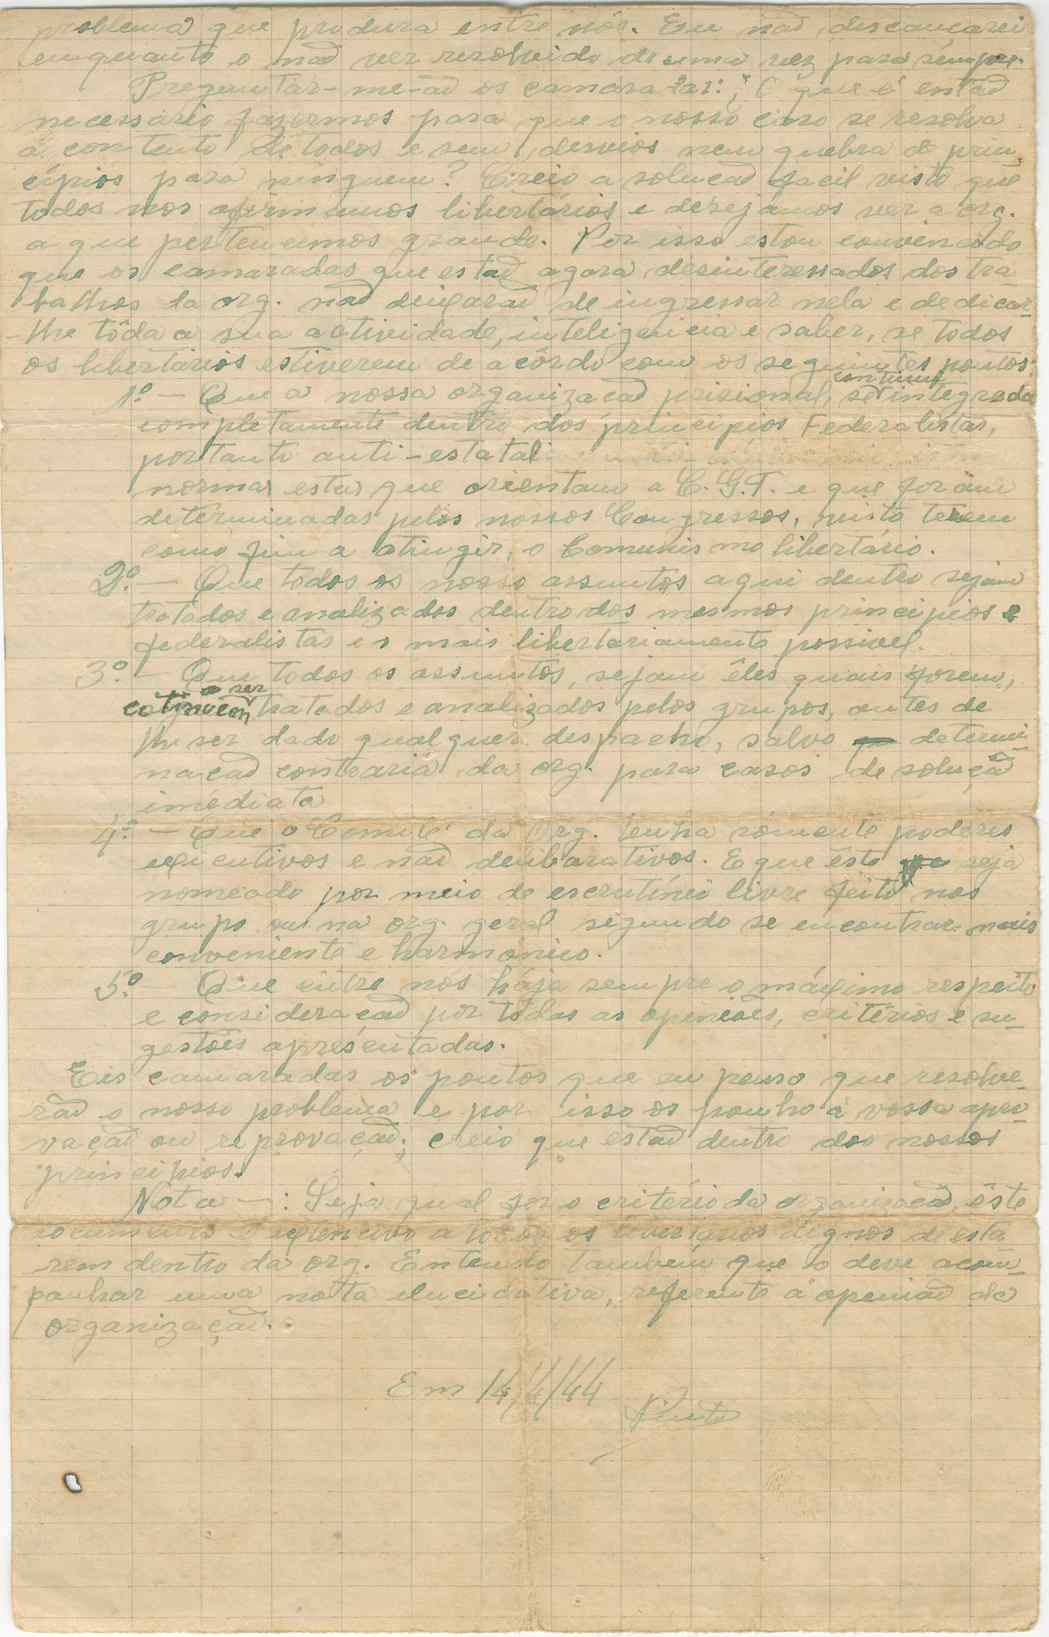 problema que perdura entre nós. Eu não descançarei
emquanto o não ver resolvido de uma vez para sempre.
Preguntar-me-ão os camaradas: O que é então
necessário fazermos para que o nosso caso se resolva
a contento de todos e sem desvios nem quebra de prin
cípios para ninguem? Creio a solução facil visto que
todos nos afirmamos libertários e desejamos ver a org.
a que pertencemos grande. Por isso estou convencido
que os camaradas que estão agora desinteressados dos tra
balhos da org. não deixarão de ingressar nela e dedicar-
-lhe tôda a sua actividade, inteligencia e saber, se todos
os libertários estiverem de acôrdo com os seguintes pontos:
1º. — Que a nossa organização prisional, se continue integrada
completamente dentro dos princípios Federalistas,
portanto anti-estatal
normas estas que orientam a C.G.T. e que foram
determinadas pelos nossos Congressos, nisto terem
como fim a atingir, o Comunismo libertário.
2º. — Que todos os nosso assuntos aqui dentro sejam
tratados e analizados dentro dos mesmos princípios e
federalistas e o mais libertariamente possivel.
3º — Que todos os assuntos, sejam êles quais forem,
continuem a ser tratados e analizados pelos grupos, antes de
lhe ser dado qualquer despacho, salvo determi-
nação contrária da org. para casos de solução
imediata
4º. — Que o Comité da Org. tenha sómente poderes
executivos e não deliberativos. E que êste seja
nomeado por meio de escrutínio livre feito nos
grupo ou na org. geral segundo se encontrar mais
conveniente e harmonico.
5º. Que entre nós hája sempre o máximo respeito
e consideração por tôdas as opiniões, critérios e su-
gestões apresentadas.
Eis camaradas os pontos que eu penso que resolve-
rão o nosso problema e por isso os ponho á vossa apro
vação ou reprovação; creio que estão dentro dos nossos
princípios.
Nota —: Seja qual for o critério da organização, êste
documento é extensivo a todos os dignos de esta
rem dentro da org. Entendo tambêm que o deve acom-
panhar uma nota elucidativa, referente á opinião da
organização.
Em 14/4/44
Pinto